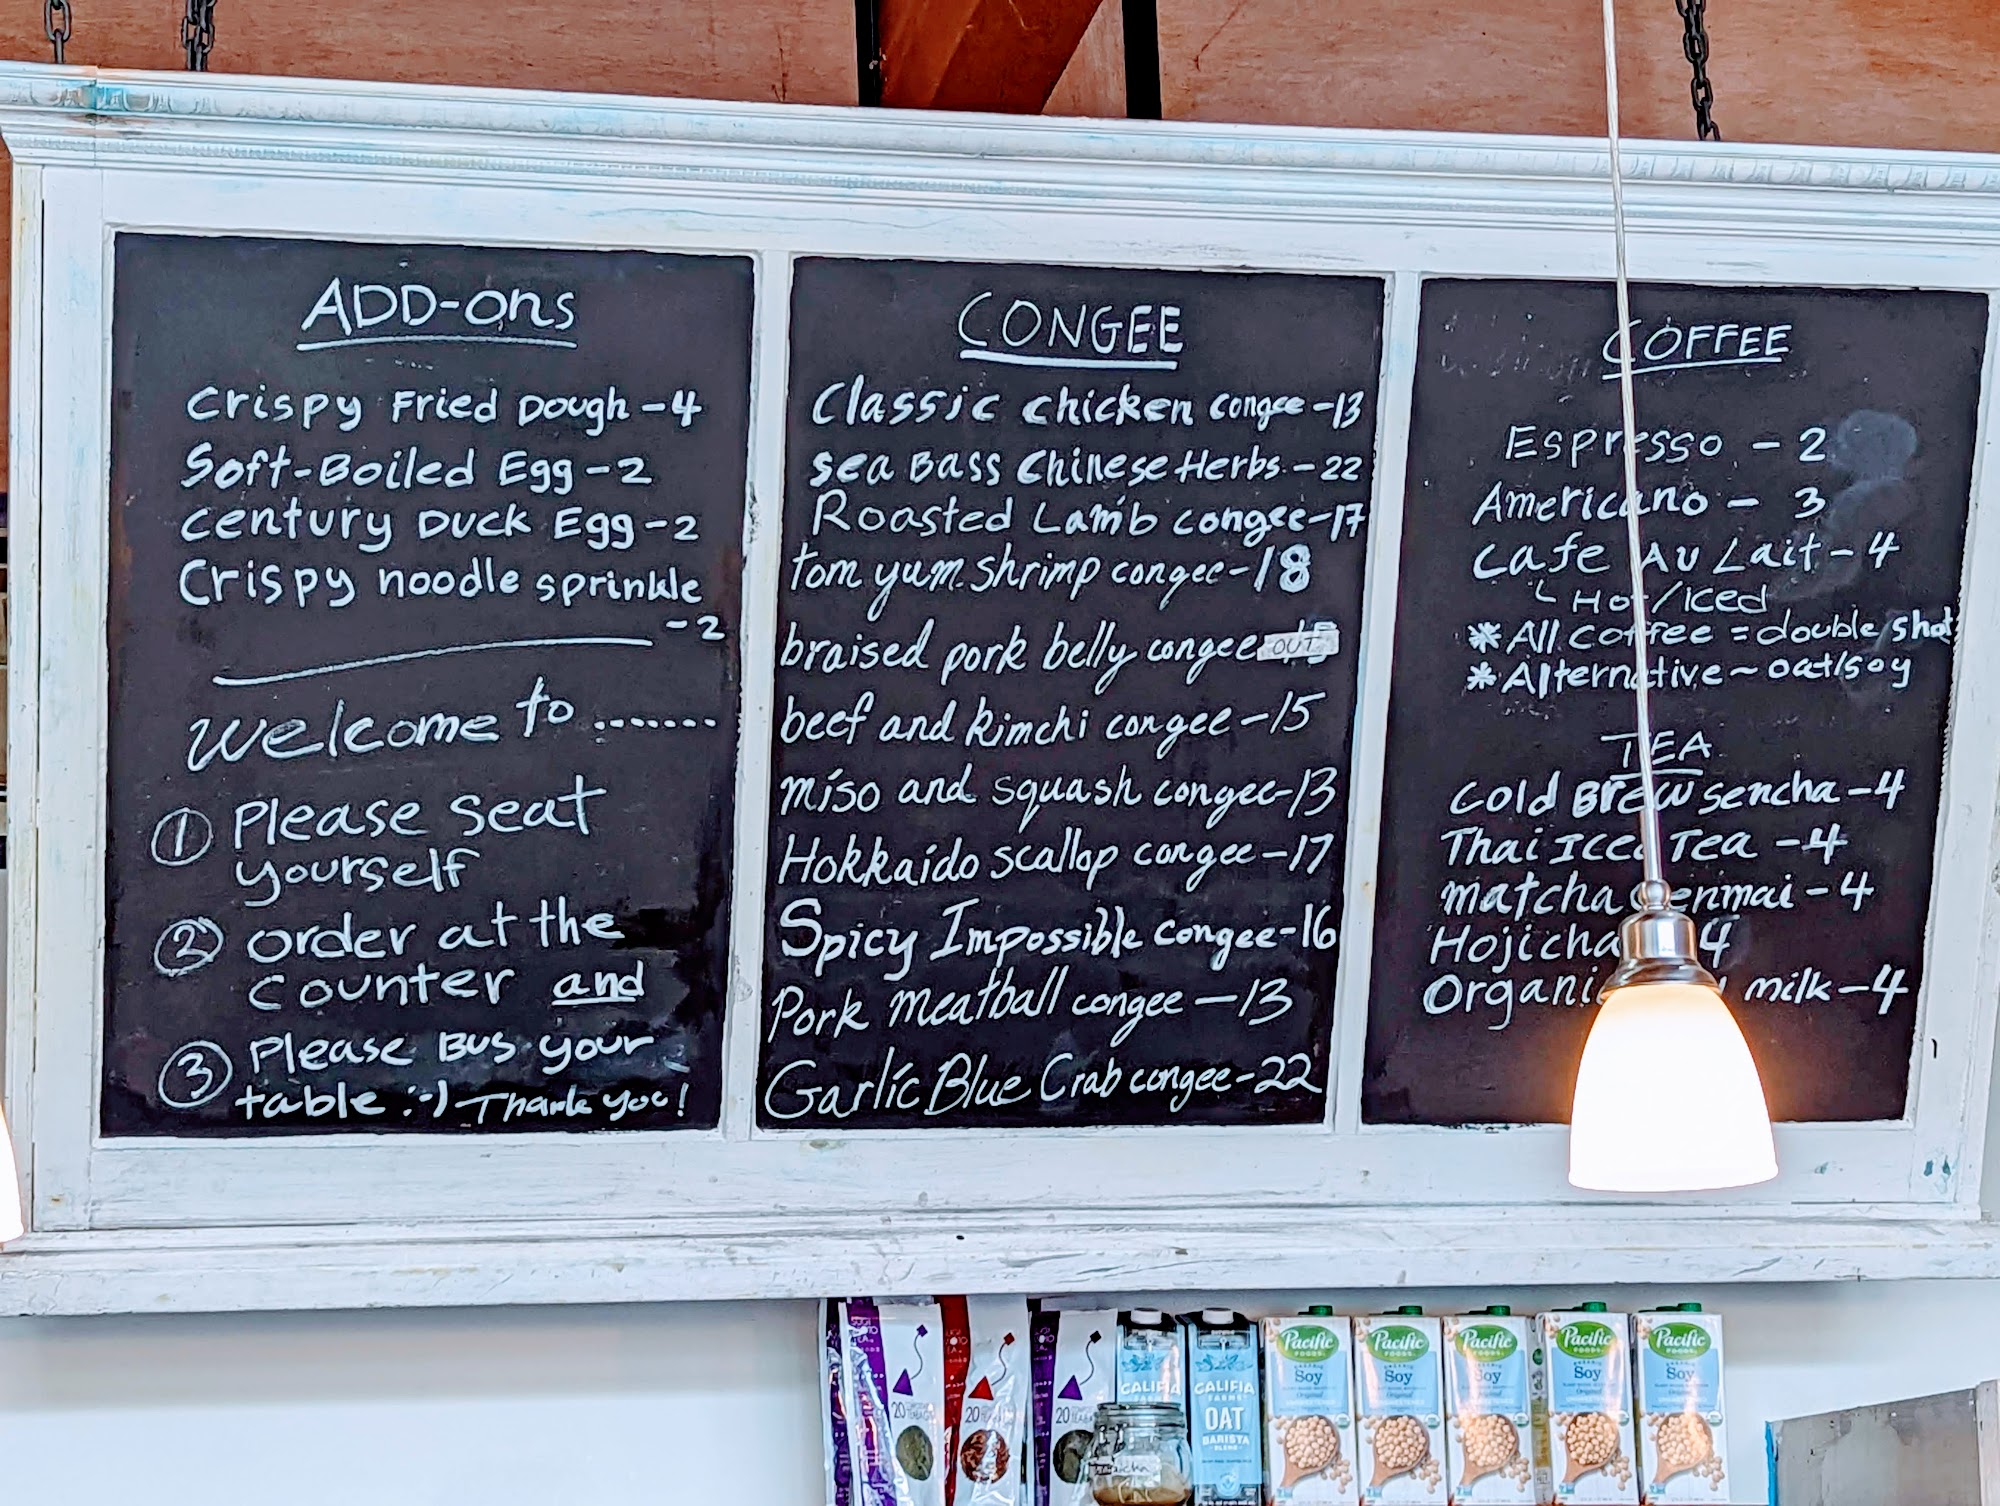 ADD-ons
Crispy Fried Dough - 4
Soft-Boiled Egg - 2
Century Duck Egg - 2
Crispy noodle sprinkle
- 2
Welcome to .......
① Please seat
yourself
② order at the
counter and
③ Please Bus your
table :-) Thank you!
CONGEE
Classic Chicken congee - 13
Sea Bass Chinese Herbs - 22
Roasted Lamb congee - 17
tom yum shrimp congee - 18
braised pork belly congee OUT
beef and kimchi congee - 15
miso and squash congee - 13
Hokkaido scallop congee - 17
Spicy Impossible congee - 16
Pork meatball congee - 13
Garlic Blue Crab congee - 22
COFFEE
Espresso - 2
Americano - 3
Cafe Au Lait - 4
Hot/iced
* All Coffee = double shot
* Alternative ~ oat/soy
TEA
Cold Brew Sencha - 4
Thai Iced Tea - 4
Matcha Genmai - 4
Hojicha 4
milk - 4
20
20
20
CALIFIA
CALIFIA
FARMS
OAT
BARISTA
BLEND
Pacific
FOODS
ORGANIC
Soy
Original
Pacific
FOODS
Soy
Original
Pacific
FOODS
Soy
Original
Pacific
FOODS
ORGANIC
Soy
Original
Pacific
FOODS
ORGANIC
Soy
Original